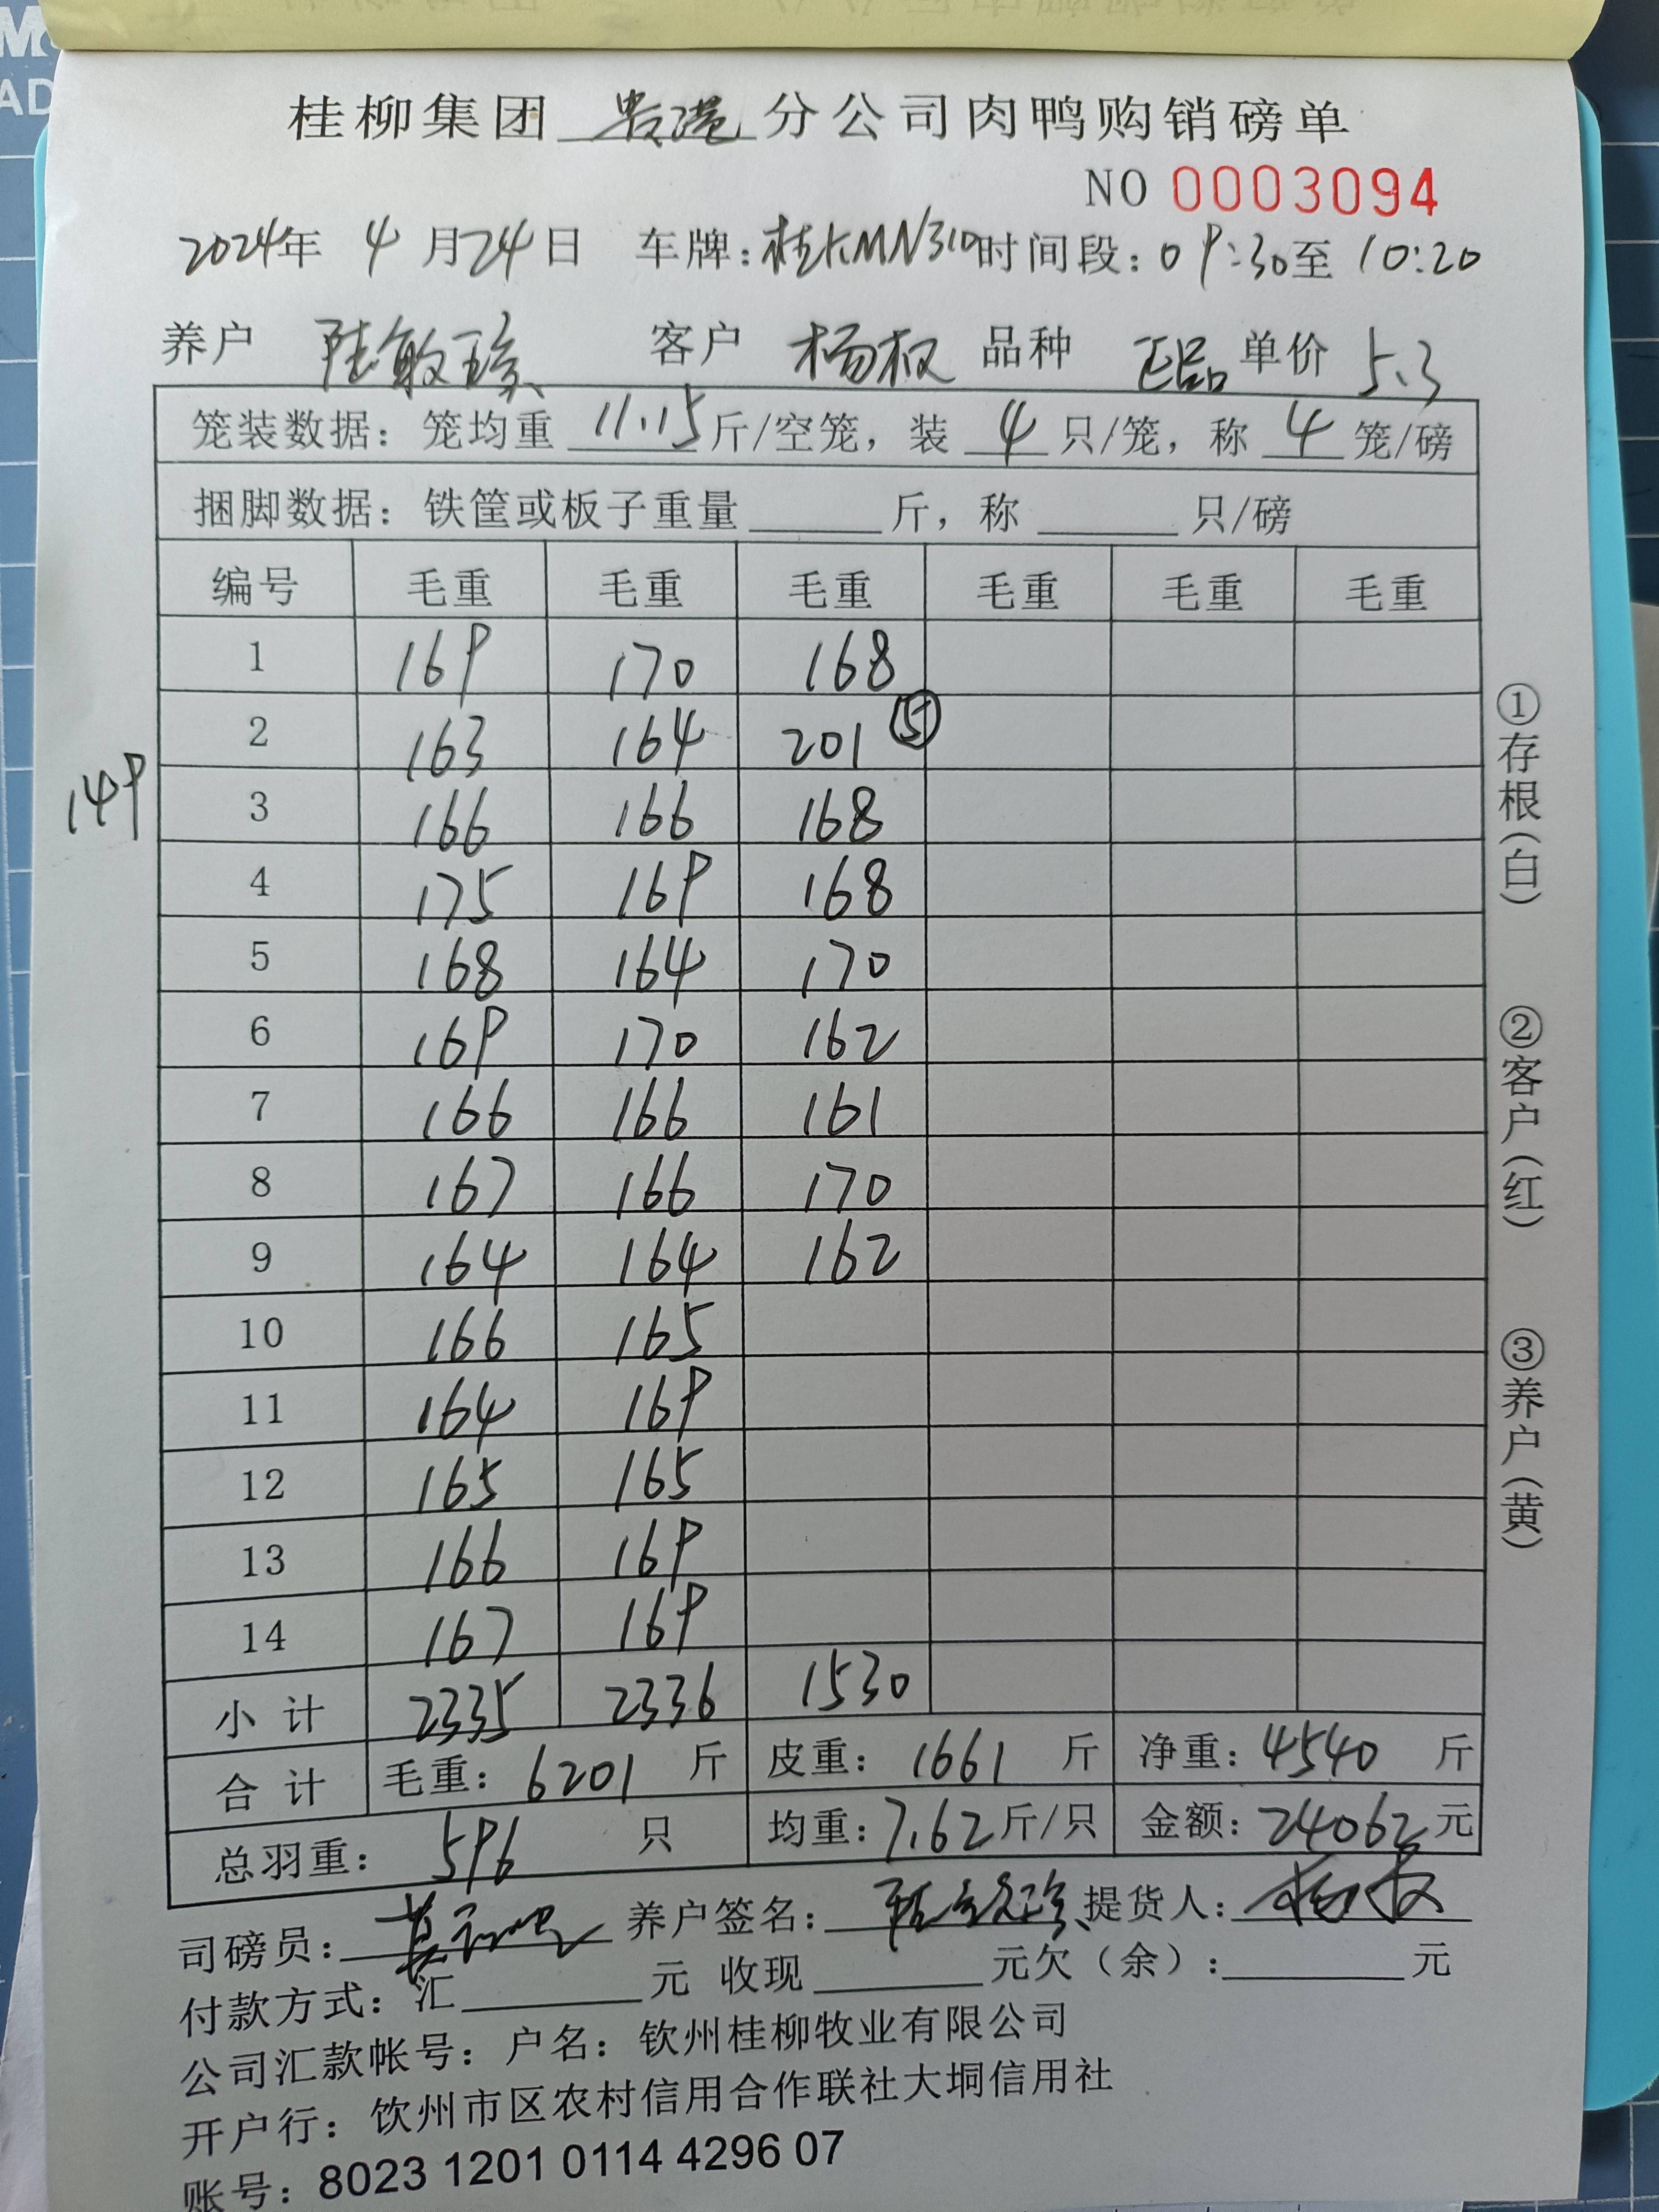 桂柳集团 贵港 分公司肉鸭购销磅单
NO 0003094
2024年 4 月 24 日 车牌：桂KMN310 时间段：09:30 至 10:20
养户 陆敏珍 客户 杨权 品种 正品 单价 5.3
笼装数据：笼均重 11.15 斤/空笼，装 4 只/笼，称 4 笼/磅
捆脚数据：铁筐或板子重量 斤，称 只/磅
编号 毛重 毛重 毛重 毛重 毛重 毛重
1 169 170 168
2 163 164 201 ⑤
149
3 166 166 168
4 175 169 168
5 168 164 170
6 169 170 162
7 166 166 161
8 167 166 170
9 164 164 162
10 166 165
11 164 169
12 165 165
13 166 169
14 167 169
小计 2335 2336 1530
合计 毛重：6201 斤 皮重：1661 斤 净重：4540 斤
总羽重：596 只 均重：7.62 斤/只 金额：24062 元
司磅员： 养户签名： 提货人：杨权
付款方式：汇 元 收现 元欠（余）： 元
公司汇款帐号：户名：钦州桂柳牧业有限公司
开户行：钦州市区农村信用合作联社大垌信用社
账号：8023 1201 0114 4296 07
①存根（白）
②客户（红）
③养户（黄）